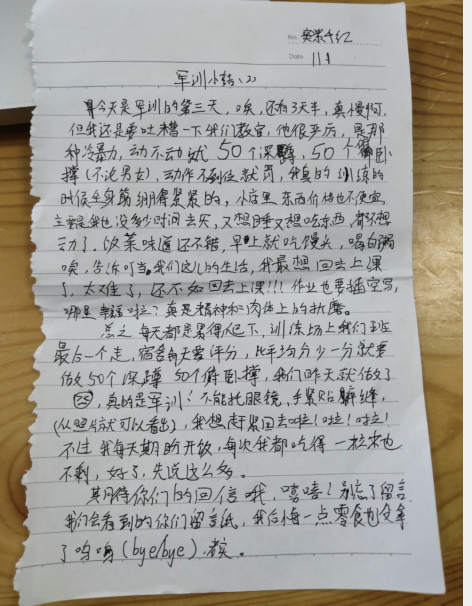 No.
Date 11.4
军训小结(2)
今天是军训的第三天，唉，还有3天半，真慢啊，
但我还是要吐槽一下我们教官，他很严厉，是那
种冷暴力，动不动就50个深蹲，50个俯卧
撑（不论男女），动作不到位就罚，我真的训练的
时候全身筋绷得紧紧的，小店里东西价格也不便宜，
主要是我也没多少时间去买，又想睡又想吃东西都不想
动了，饭菜味道还不错，早上就吃馒头，喝白粥
唉，告诉叮当，我们这儿的生活，我最想回去上课
了，太难了，还不如回去上课!!!作业也要抽空写，
哪里幸福啦？真是精神和肉体上的折磨。
总之每天都是累得趴下，训练场上我们班
最后一个走，宿舍每天要评分，比平均分少一分就要
做50个深蹲50个俯卧撑，我们昨天就做了
真的是军训！不能托眼镜，手紧贴裤缝，
（从照片就可以看出），我想赶紧回去啦！啦！啦！
不过我每天期盼开饭，每次我都吃得一粒米也
不剩，好了，先说这么多。
期待你们的回信哦，嘻嘻！别忘了留言
我们会看到的你们留言纸，我后悔一点零食也没拿
了呜呜(bye/bye)